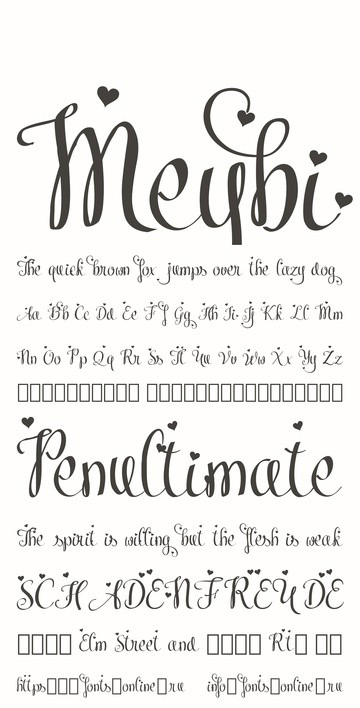 Meybi
The quick brown fox jumps over the lazy dog
Aa Bb Cc Dd Ee Ff Gg Hh Ii Jj Kk Ll Mm
Nn Oo Pp Qq Rr Ss Tt Uu Vv Ww Xx Yy Zz
Penultimate
The spirit is willing but the flesh is weak
SCHADENFREUDE
Elm Street and Rt
https fonts online ru info fonts online ru